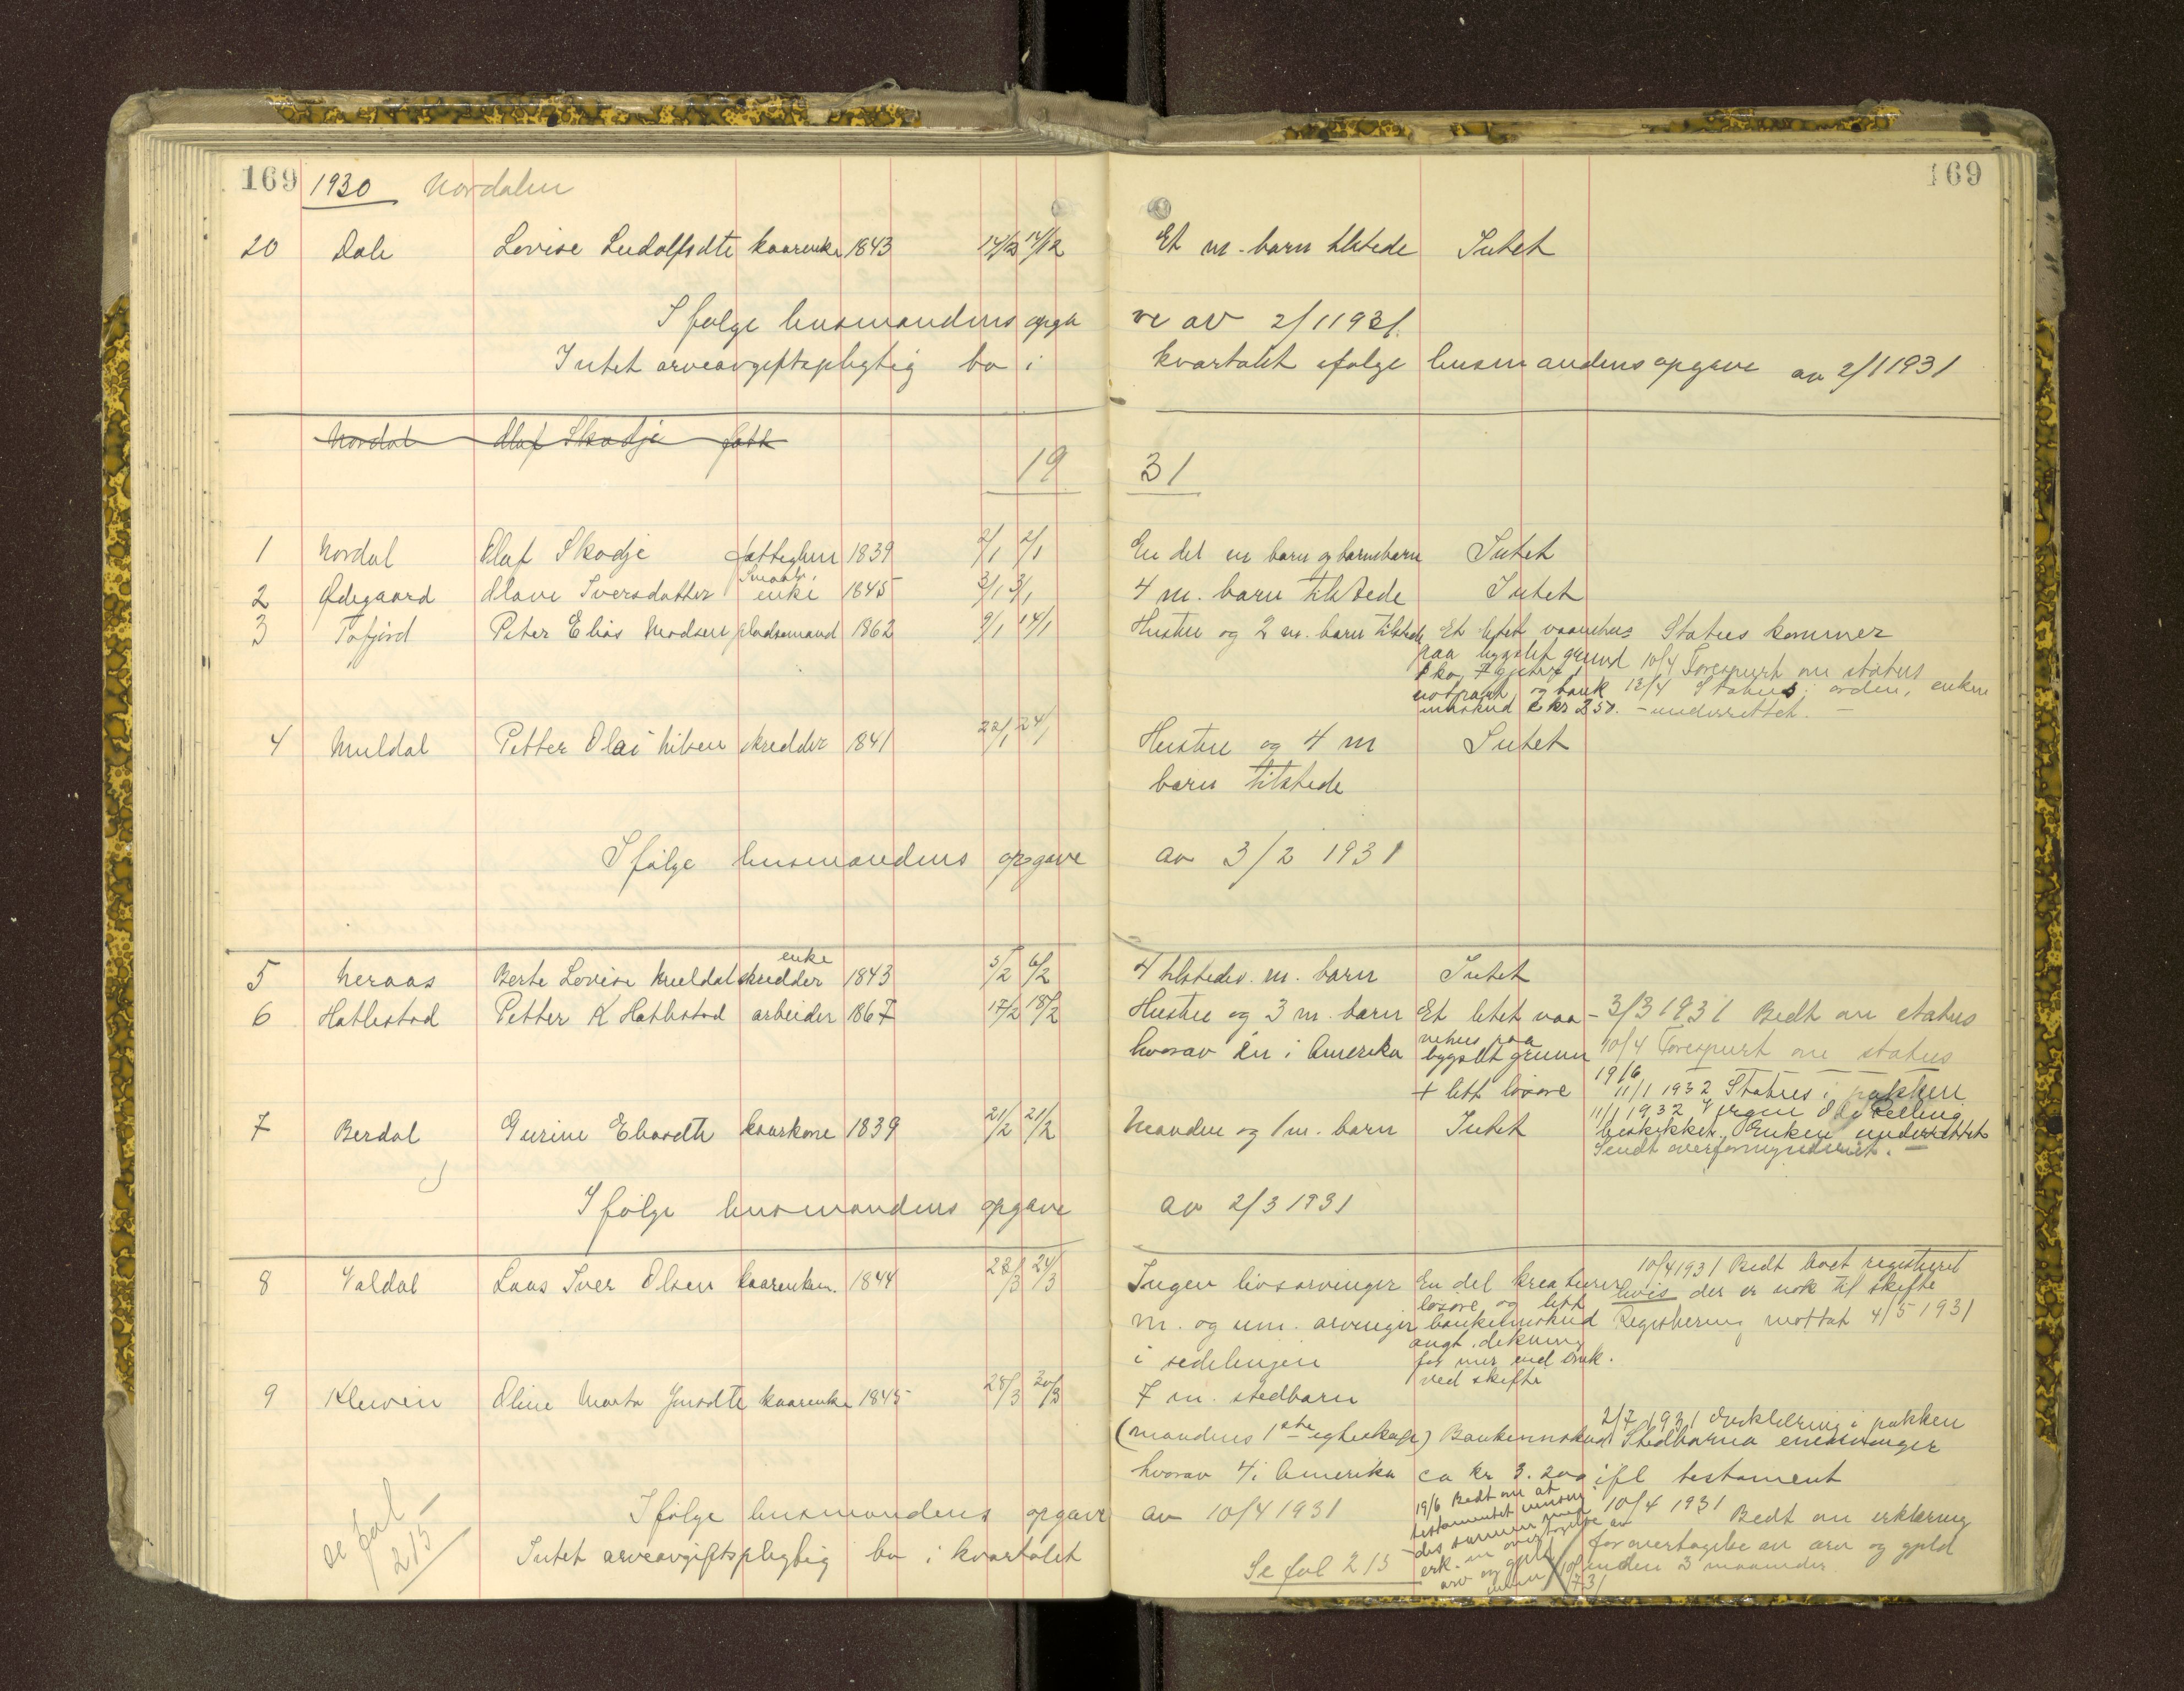 169 1930 Nordalen 169
20 Dale Lovise Ludolfsdtr kaarenke 1843 14/12 14/12 Et m. barn tilstede Intet
Ifølge lensmandens opga ve av 2/1 1931.
Intet arveavgiftspligtig bo i kvartalet ifølge lensmandens opgave av 2/1 1931
Nordal Olaf Skodje fatt
19 31
1 Nordal Olaf Skodje fattiglem 1839 2/1 2/1 En del m barn og barnebarn Intet
2 Ødegaard Olave Iversdatter enke 1845 3/1 3/1 4 m. barn tilstede Intet
3 Tafjord Peter Elias Madsen pladsemand 1862 9/1 14/1 Hustru og 2 m. barn tilstede Et litet vaanehus Status kommer
paa bygslet grund 10/4 Forespurt om status
1 ko, 7 gjeter, og bank 13/4 Status i orden, enken
innskud kr 250. - underrettet. -
4 Muldal Petter Olai Nilsen skredder 1841 22/1 24/1 Hustru og 4 m Intet
barn tilstede
Ifølge lensmandens opgave av 3/2 1931
enke
5 Neraas Berte Lovise Muldal skredder 1843 5/2 6/2 4 tilstedev. m. barn Intet
6 Hatlestad Petter K Hatlestad arbeider 1867 17/2 18/2 Hustru og 3 m. barn Et litet vaa- 3/3 1931 Bedt om status
hvorav én i Amerika nehus paa bygslet grunn 10/4 Forespurt om status
+ litt løsøre 19/6
11/1 1932 Status i pakken
7 Berdal Gurine Elvardtr kaarkone 1839 21/2 21/2 Manden og 1 m. barn Intet 11/1 1932 Verge Relling
beskikket. Enken underrettet
Sendt overformynderiet. -
Ifølge lensmandens opgave av 2/3 1931
8 Valdal Laas Iver Olsen kaarenkem. 1844 23/3 24/3 Ingen livsarvinger En del kreaturer 10/4 1931 Bedt boet registrert
løsøre og litt hvis der er nok til skifte
m. og um. arvinger bankinnskud Registrering mottat 4/5 1931
i sidelinjen angt. dekning
for mer end omk.
ved skifte
9 Kleiven Oline Marta Jensdtr kaarenke 1845 28/3 30/3 7 m. stedbarn
(mandens 1ste egteskap) Bankinnskud 2/7 1931 Erklæring i pakken
Stedbarna enearvinger
hvorav 4 i Amerika ca kr 3.200 ifl testament
Ifølge lensmandens opgave av 10/4 1931 19/6 Bedt om at 10/4 1931 Bedt om erklæring
testamentet innsendes sammen med for overtagelse av arv og gjeld
Intet arveavgiftspligtig bo i kvartalet erk. om overtagelse av inden 3 maaneder
arv og gjeld innen 10/7 31
se fol 215
Se fol 215